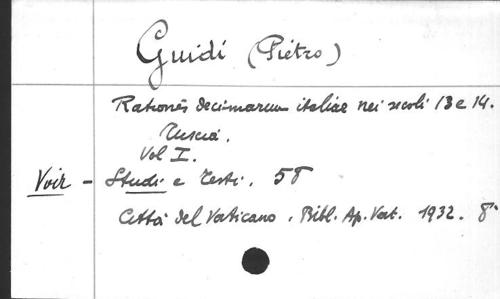 Guidi (Pietro)
Rationes decimarum italiae nei secoli 13 e 14.
Tuscia.
Vol I.
Voir - Studi e Testi. 58
Città del Vaticano. Bibl. Ap. Vat. 1932. 8°